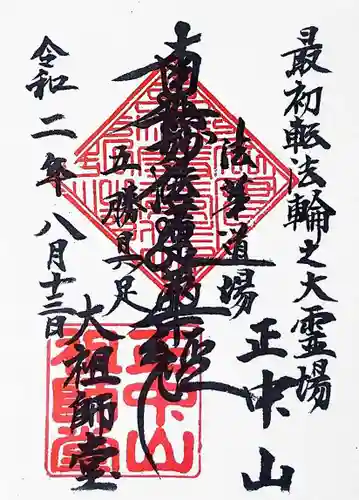 最初転法輪之大霊場
正中山
法華道場
南無妙法蓮華経
五勝具足
大祖師堂
令和二年八月十三日
正中山
祖師堂